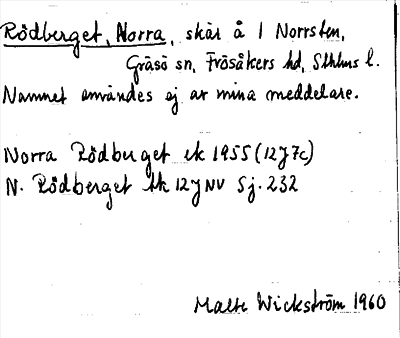 Rödberget, Norra, skär å 1 Norrsten,
Gräsö sn, Frösåkers hd, Sthlms l.
Namnet användes ej av mina meddelare.
Norra Rödberget ek 1955 (12J7c)
N. Rödberget tk 12J NV Sj. 232
Malte Wickström 1960